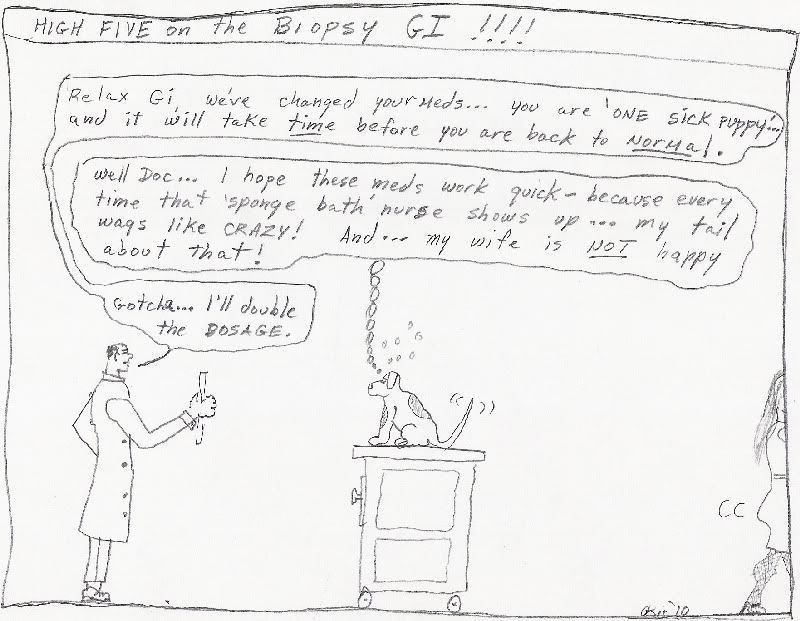 HIGH FIVE on the BIOPSY GI !!!!
Relax Gi, we've changed your Meds... you are 'ONE SICK PUPPY'...
and it will take time before you are back to NORMAl.
well Doc... I hope these meds work quick - because every
time that 'sponge bath' nurse shows up ... my tail
wags like CRAZY! And... my wife is NOT happy
about that!
Gotcha... I'll double
the DOSAGE.
CC
'10